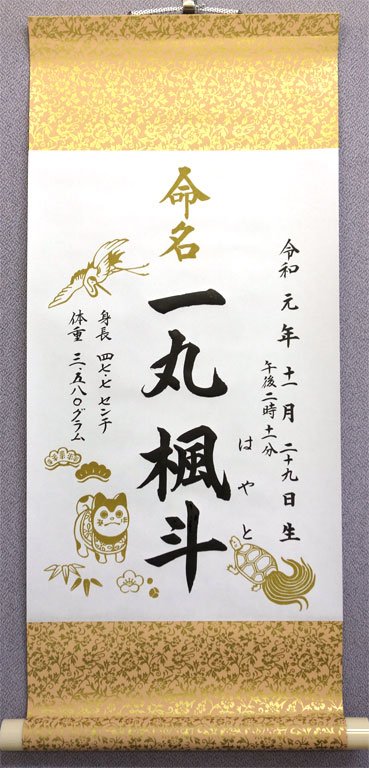 令和元年十一月二十九日生
午後二時十一分
命名
一丸楓斗
はやと
身長 四七・七センチ
体重 三・五八〇グラム